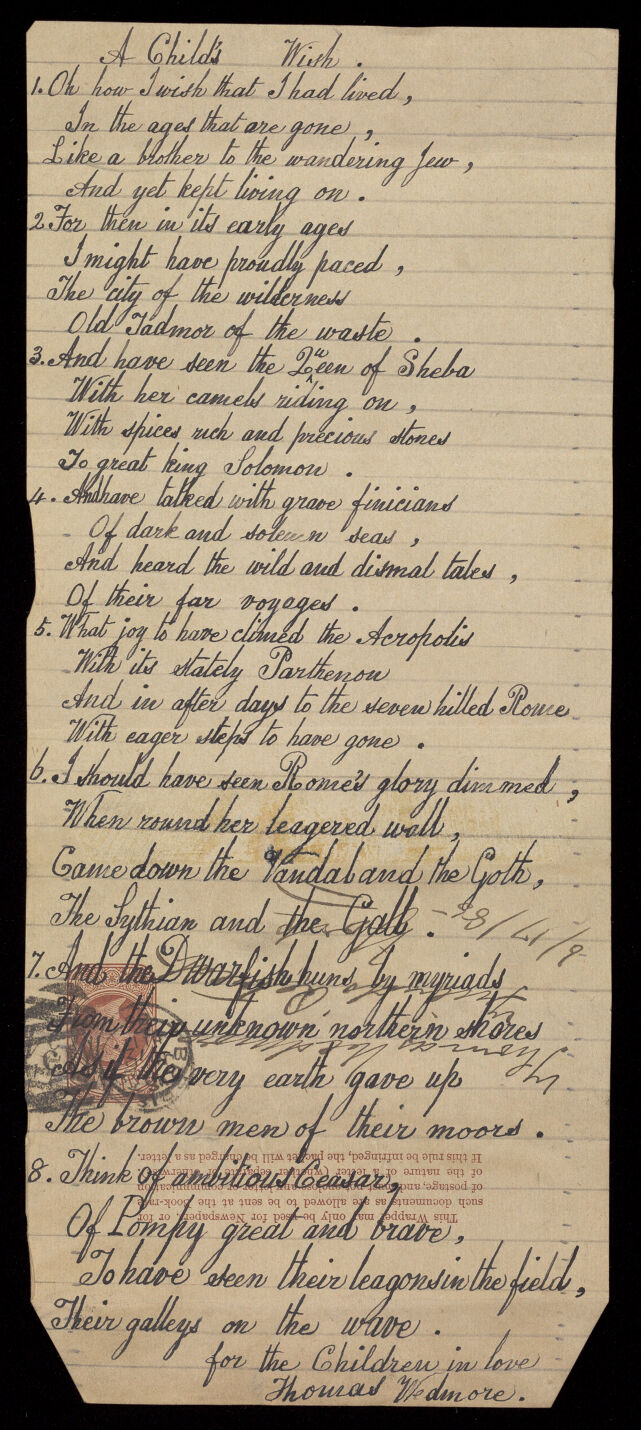 A Child's Wish.
1. Oh how I wish that I had lived,
In the ages that are gone,
Like a brother to the wandering Jew,
And yet kept living on.
2 For then in its early ages
I might have proudly paced,
The city of the wilderness
Old Tadmor of the waste.
3. And have seen the Queen of Sheba
With her camels riding on,
With spices rich and precious stones
To great king Solomon.
4. And have talked with grave finicians
Of dark and solemn seas,
And heard the wild and dismal tales,
Of their far voyages.
5. What joy to have climed the Acropolis
With its stately Parthenon
And in after days to the seven hilled Rome
With eager steps to have gone.
6. I should have seen Rome's glory dimmed,
When round her leagered wall,
Came down the Vandal and the Goth,
The Sythian and the Gall.
7. And the Dwarfish huns by myriads
From their unknown northern shores
As if the very earth gave up
The brown men of their moors.
8. Think of ambitious Ceasar,
Of Pompy great and brave,
To have seen their leagons in the field,
Their galleys on the wave.
for the Children in love
Thomas Wedmore.
This Wrapper may only be used for Newspapers, or for
such documents as are allowed to be sent at the book-rate
of postage, and must not enclose any letter or communication
of the nature of a letter (whether separate or otherwise).
If this rule be infringed, the packet will be charged as a letter.